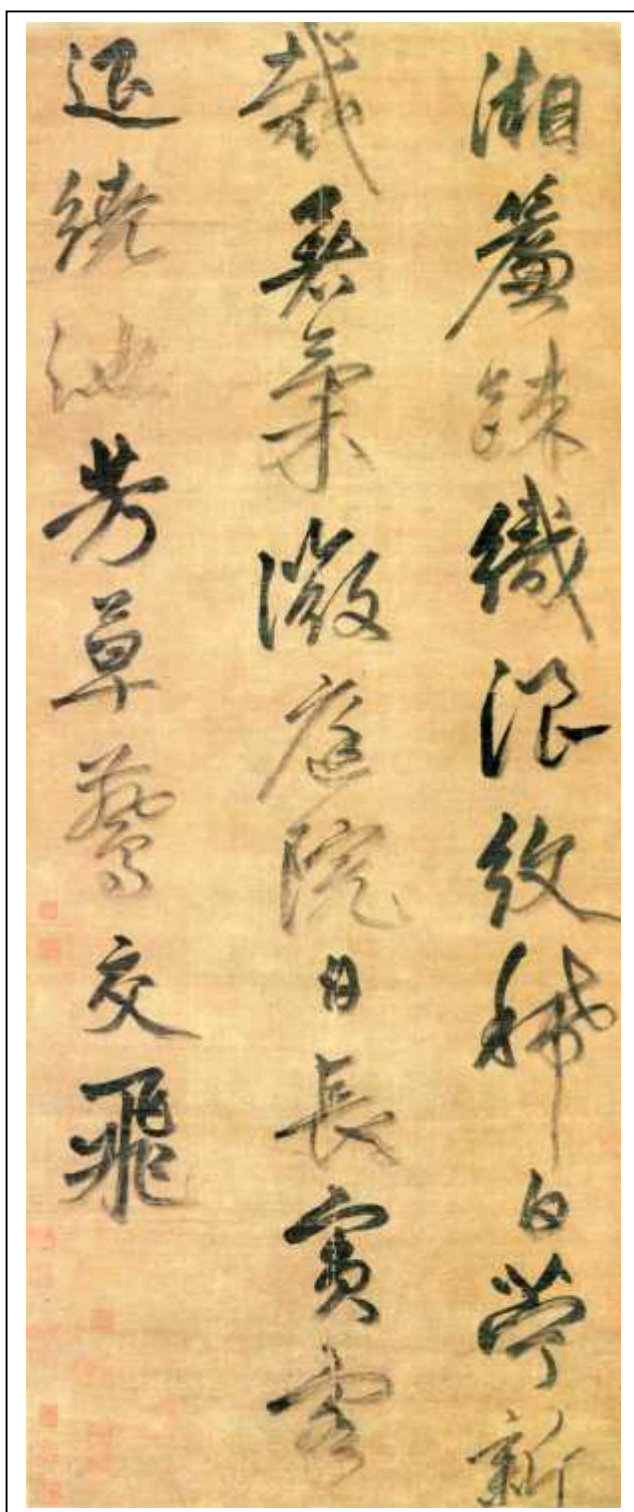 湘簾踈織浪紋稀白苧新
裁暑氣微庭院日長賓客
退繞池芳草鷰交飛